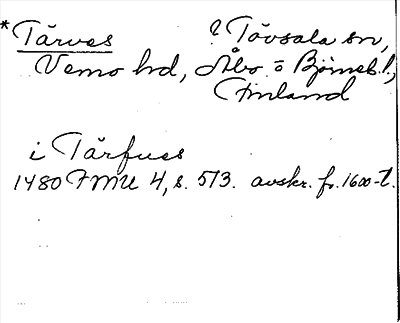 *Tärves ? Tövsala sn,
Vemo hd, Åbo o Björneb. l.,
Finland
i Tärfues
1480 FMU 4, s. 513. avskr. fr. 1600-t.